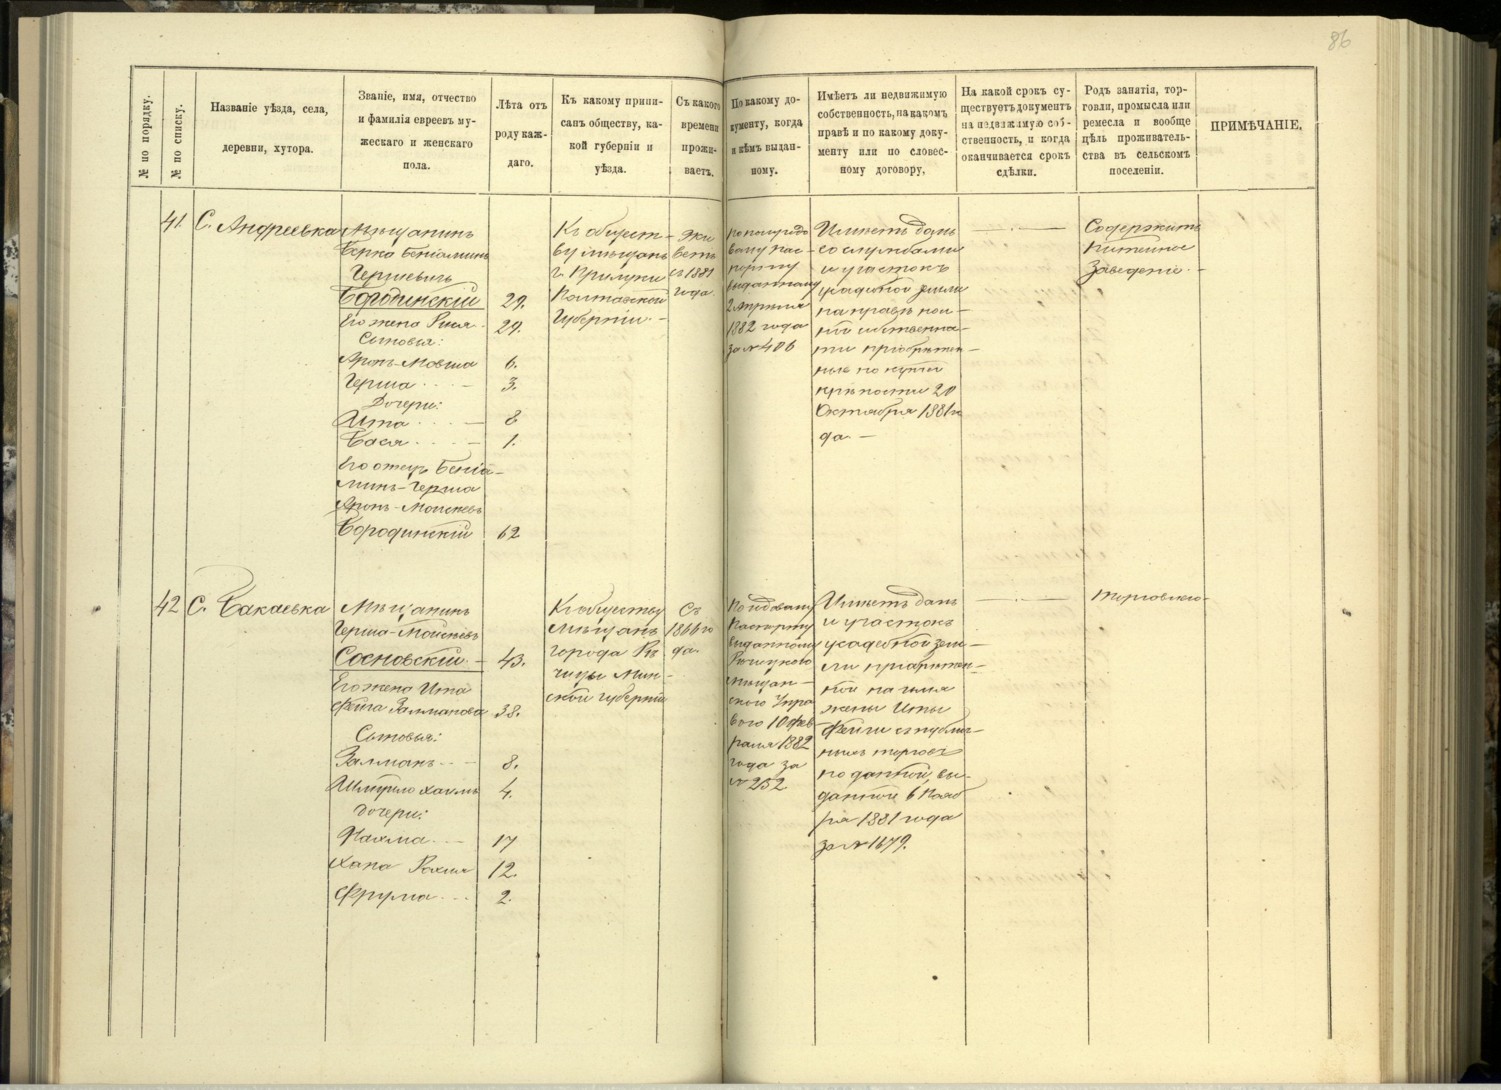 86
№ по порядку.
№ по списку.
Названіе уѣзда, села,
деревни, хутора.
Званіе, имя, отчество
и фамилія евреевъ му-
жескаго и женскаго
пола.
Лѣта отъ
роду каж-
даго.
Къ какому припи-
санъ обществу, ка-
кой губерніи и
уѣзда.
Съ какого
времени
прожи-
ваетъ.
По какому до-
кументу, когда
и кѣмъ выдан-
ному.
Имѣетъ ли недвижимую
собственность, на какомъ
правѣ и по какому доку-
менту или по словес-
ному договору.
На какой срокъ су-
ществуетъ документъ
на недвижимую соб-
ственность, и когда
оканчивается срокъ
сдѣлки.
Родъ занятія, тор-
говли, промысла или
ремесла и вообще
цѣль проживатель-
ства въ сельскомъ
поселеніи.
ПРИМѢЧАНІЕ.
41.
С. Андреевка
Мѣщанинъ
Берко Беніаминъ
Гершевичъ
Бородинскій 29.
Его жена Рися 29.
Сыновья:
Аронъ-Мовша 6.
Герша 3.
Дочери:
Ита 8
Бася 1.
Его отецъ Беніа-
минъ-Герша
Аронъ-Мойсеевъ
Бородинскій 62
Къ общест-
ву мѣщанъ
г. Прилуки
Полтавской
Губерніи.
Жи
ветъ
съ 1881
года.
По полугодо
вому пас-
порту
выданному
2 апрѣля
1882 года
за № 406
Имѣетъ домъ
со службами
и участокъ
усадебной земли
на правѣ пол-
ной собственно-
сти приобрѣтен-
ные по купчей
крѣпости 20
Октября 1881 го
да.
Содержитъ
Питейное
Заведеніе.
42
С. Бакаевка
Мѣщанинъ
Герша-Мойсеевъ
Сосновскій 43.
Его жена Ита
Фейга Залманова 38.
Сыновья:
Залманъ 8.
Шмуйло Хаимъ 4.
Дочери:
Фахма 17
Хана Рохля 12.
Фрума 2.
Къ обществу
мѣщанъ
города Рѣ
чицы Мин-
ской губерніи
Съ
1866 го
да.
По годовому
паспорту
выданному
Рѣчицкою
мѣщан-
скою Упра
вою 10 фев
раля 1882
года за
№ 252
Имѣетъ домъ
и участокъ
усадебной зем-
ли приобрѣтен-
ной на имя
жены Иты
Фейги съ публич-
ныхъ торговъ
по данной, вы-
данной 6 Нояб
ря 1881 года
за № 1679.
Торговлею